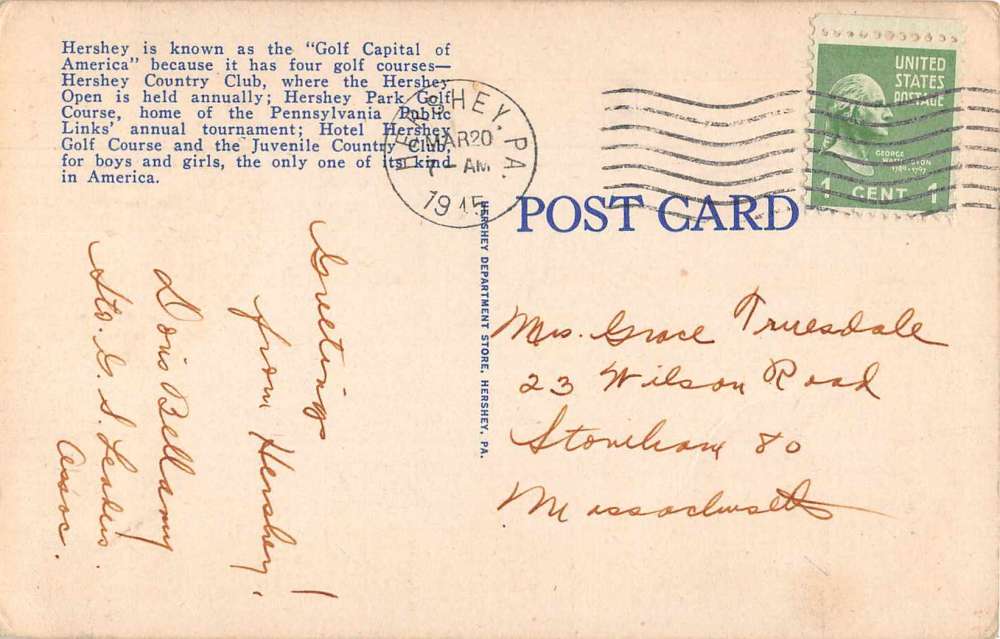 Hershey is known as the "Golf Capital of
America" because it has four golf courses—
Hershey Country Club, where the Hershey
Open is held annually; Hershey Park Golf
Course, home of the Pennsylvania Public
Links' annual tournament; Hotel Hershey
Golf Course and the Juvenile Country Club,
for boys and girls, the only one of its kind
in America.
HERSHEY, PA.
MAR 20
7 - AM
1945
UNITED
STATES
POSTAGE
GEORGE
WASHINGTON
1789-1797
1 CENT 1
POST CARD
HERSHEY DEPARTMENT STORE, HERSHEY, PA.
Greetings
from Hershey!
Doris Bellamy
Sto. G. S. Leaders
Assoc.
Mrs. Grace Truesdale
23 Wilson Road
Stoneham 80
Massachusetts